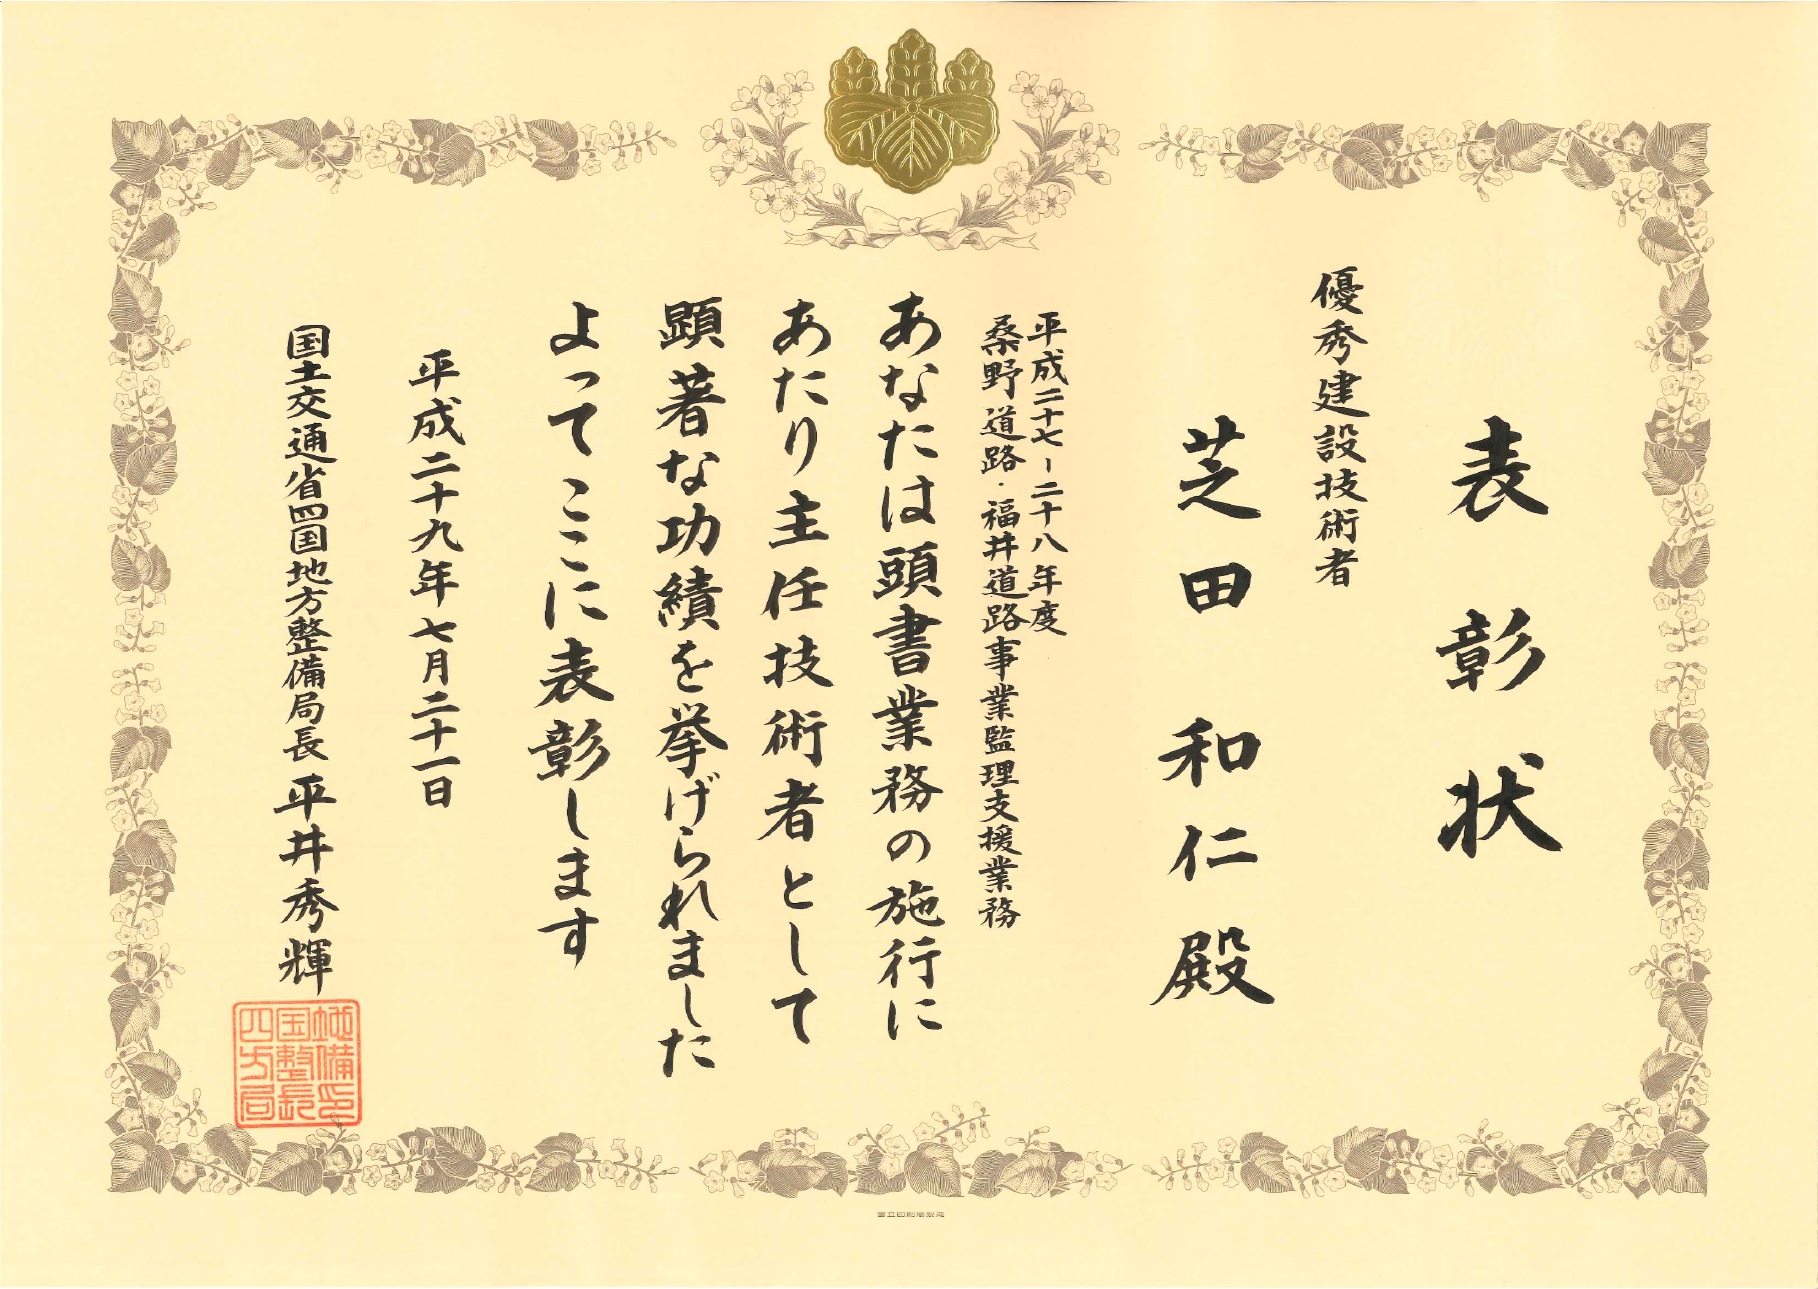 表彰状
優秀建設技術者
芝田和仁殿
平成二十七-二十八年度
桑野道路・福井道路事業監理支援業務
あなたは頭書業務の施行に
あたり主任技術者として
顕著な功績を挙げられました
よってここに表彰します
平成二十九年七月二十一日
国土交通省四国地方整備局長 平井秀輝
四国地方整備局長印
国立印刷局製造